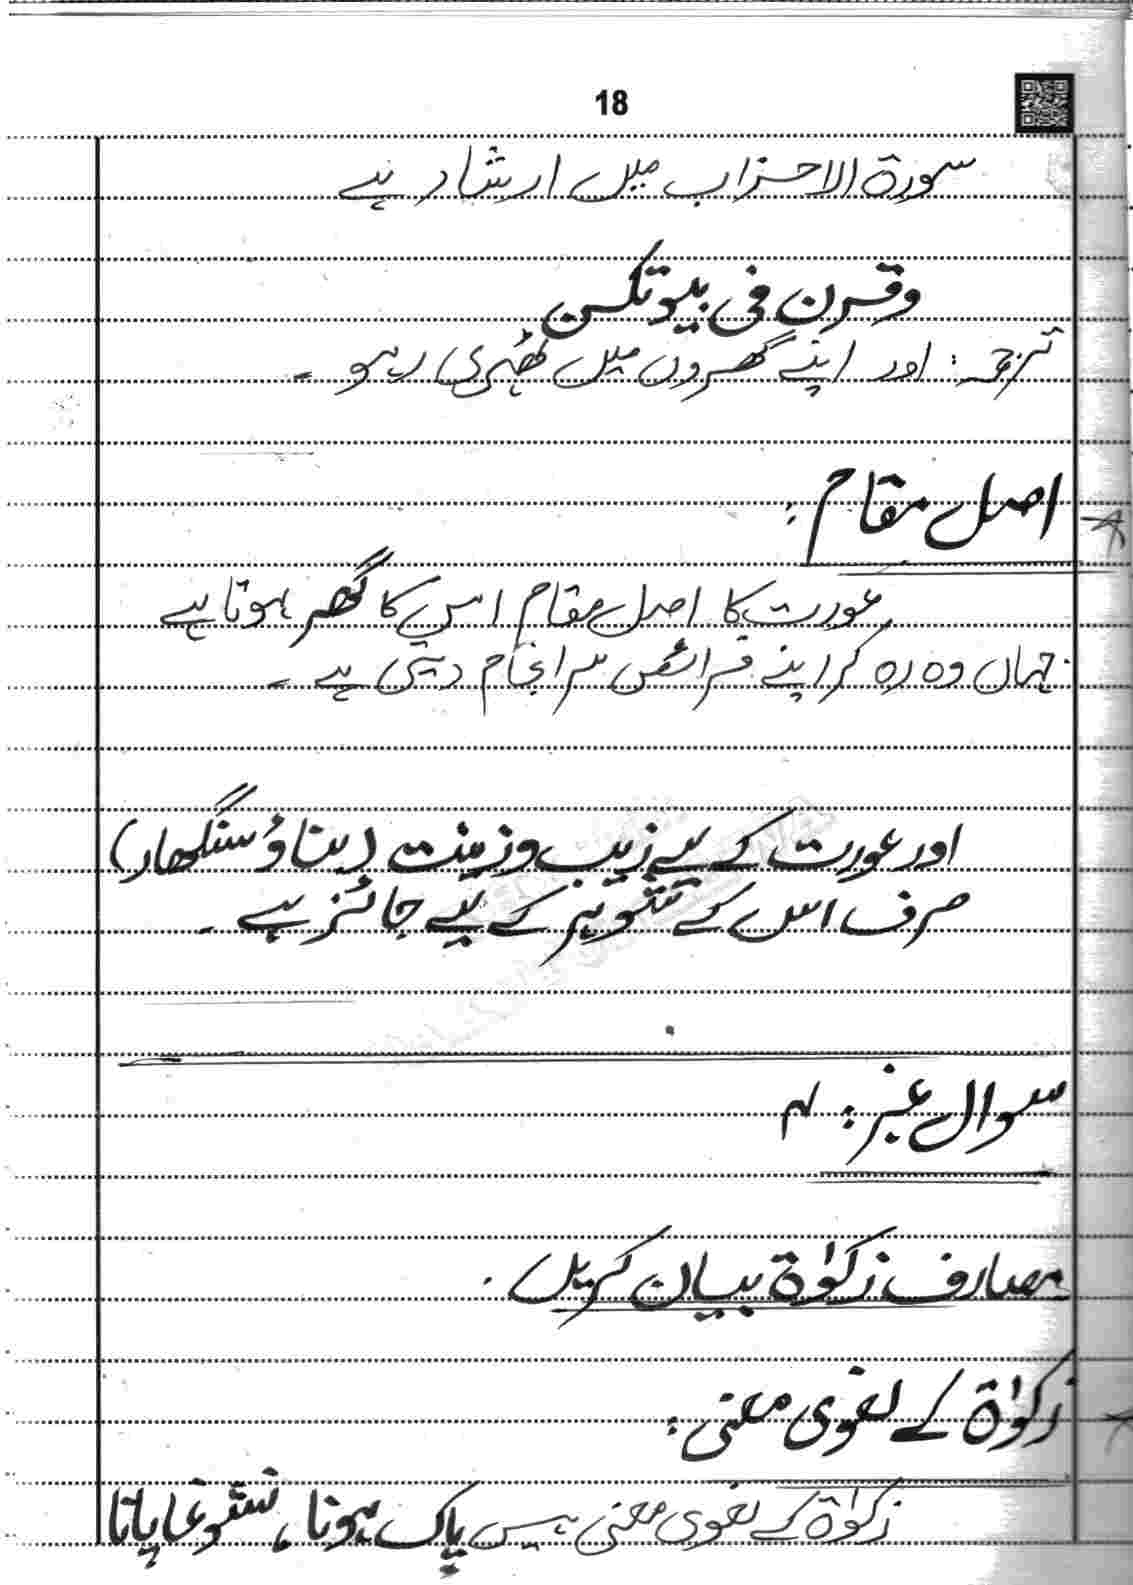 18
سورۃ الاحزاب میں ارشاد ہے
وقرن فی بیوتکن
ترجمہ: اور اپنے گھروں میں ٹھہری رہو ۔
اصل مقام :
عورت کا اصل مقام اس کا گھر ہوتا ہے
جہاں وہ رہ کر اپنے فرائض سرانجام دیتی ہے ۔
اور عورت کے لیے زیب و زینت (بناؤ سنگھار)
صرف اس کے شوہر کے لیے جائز ہے ۔
سوال نمبر: ۴
مصارف زکوٰۃ بیان کریں ۔
زکوٰۃ کے لغوی معنی :
زکوٰۃ کے لغوی معنی ہیں پاک ہونا ، نشوونما پانا